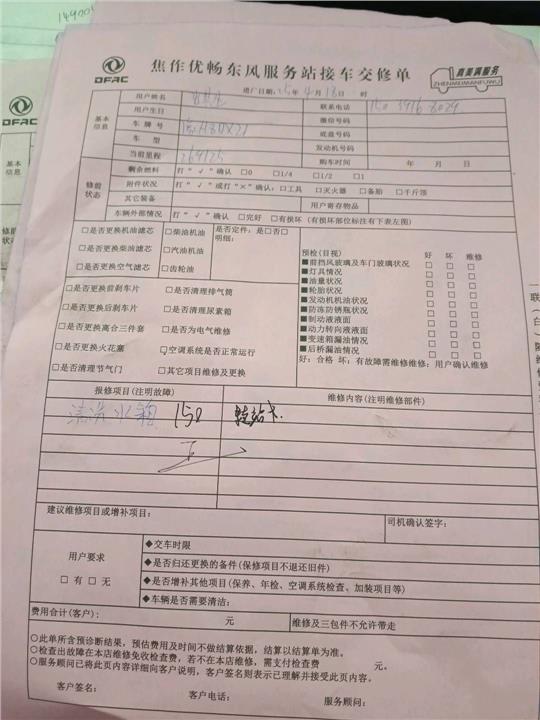 149001
DFAC
焦作优畅东风服务站接车交修单
真美满服务
ZHENMEIMANFUWU
进厂日期: 25年4月18日 时
基本信息
用户姓名
联系电话
用户生日
微信号码
车牌号
底盘号码
车型
发动机号码
当前里程 269125
购车时间 年 月 日
修前状态
剩余燃料 打“√”确认 □0 □1/4 □1/2 □1
附件状况 打“√”或打“×”确认:□工具 □灭火器 □备胎 □千斤顶
其它装备
用户寄存物品
车辆外部情况 打“√”确认 □完好 □有损坏(有损坏部位标注有下表左图)
□是否更换机油滤芯 □柴油机油
□是否更换柴油滤芯 □汽油机油
□是否更换空气滤芯 □齿轮油
是否定件: 是□否□
明细:
□是否更换前刹车片 □是否清理排气筒
□是否更换后刹车片 □是否清理尿素箱
□是否更换离合三件套 □是否为电气维修
□是否更换火花塞 □空调系统是否正常运行
□是否清理节气门 □其它项目维修及更换
预检(目视) 好 坏 维修
■前挡风玻璃及车门玻璃状况 □ □ □
■灯具情况 □ □ □
■油量状况 □ □ □
■轮胎状况 □ □ □
■发动机机油状况 □ □ □
■防冻防锈瓶状况 □ □ □
■制动液液面 □ □ □
■动力转向液液面 □ □ □
■变速箱漏油情况 □ □ □
■后桥漏油情况 □ □ □
好:合格 坏:有故障需维修维修:用户确认维修
报修项目(注明故障)
维修内容(注明维修部件)
清洗水箱 150
建议维修项目或增补项目:
司机确认签字:
用户要求
□有 □无
◆交车时限
◆是否归还更换的备件(保修项目不退还旧件)
◆是否增补其他项目(保养、年检、空调系统检查、加装项目等)
◆车辆是否需要清洁:
费用合计(客户): 元
维修及三包件不允许带走
○此单所含预诊断结果,预估费用及时间不做结算依据,结算以结算单为准。
○检查出故障在本店维修免收检查费,若不在本店维修,需支付检查费 元。
○服务顾问已将此页内容详细向客户说明,客户签名则表示已理解并接受此页内容。
客户签名: 客户电话: 服务顾问:
DFAC
基本信息
修前状态